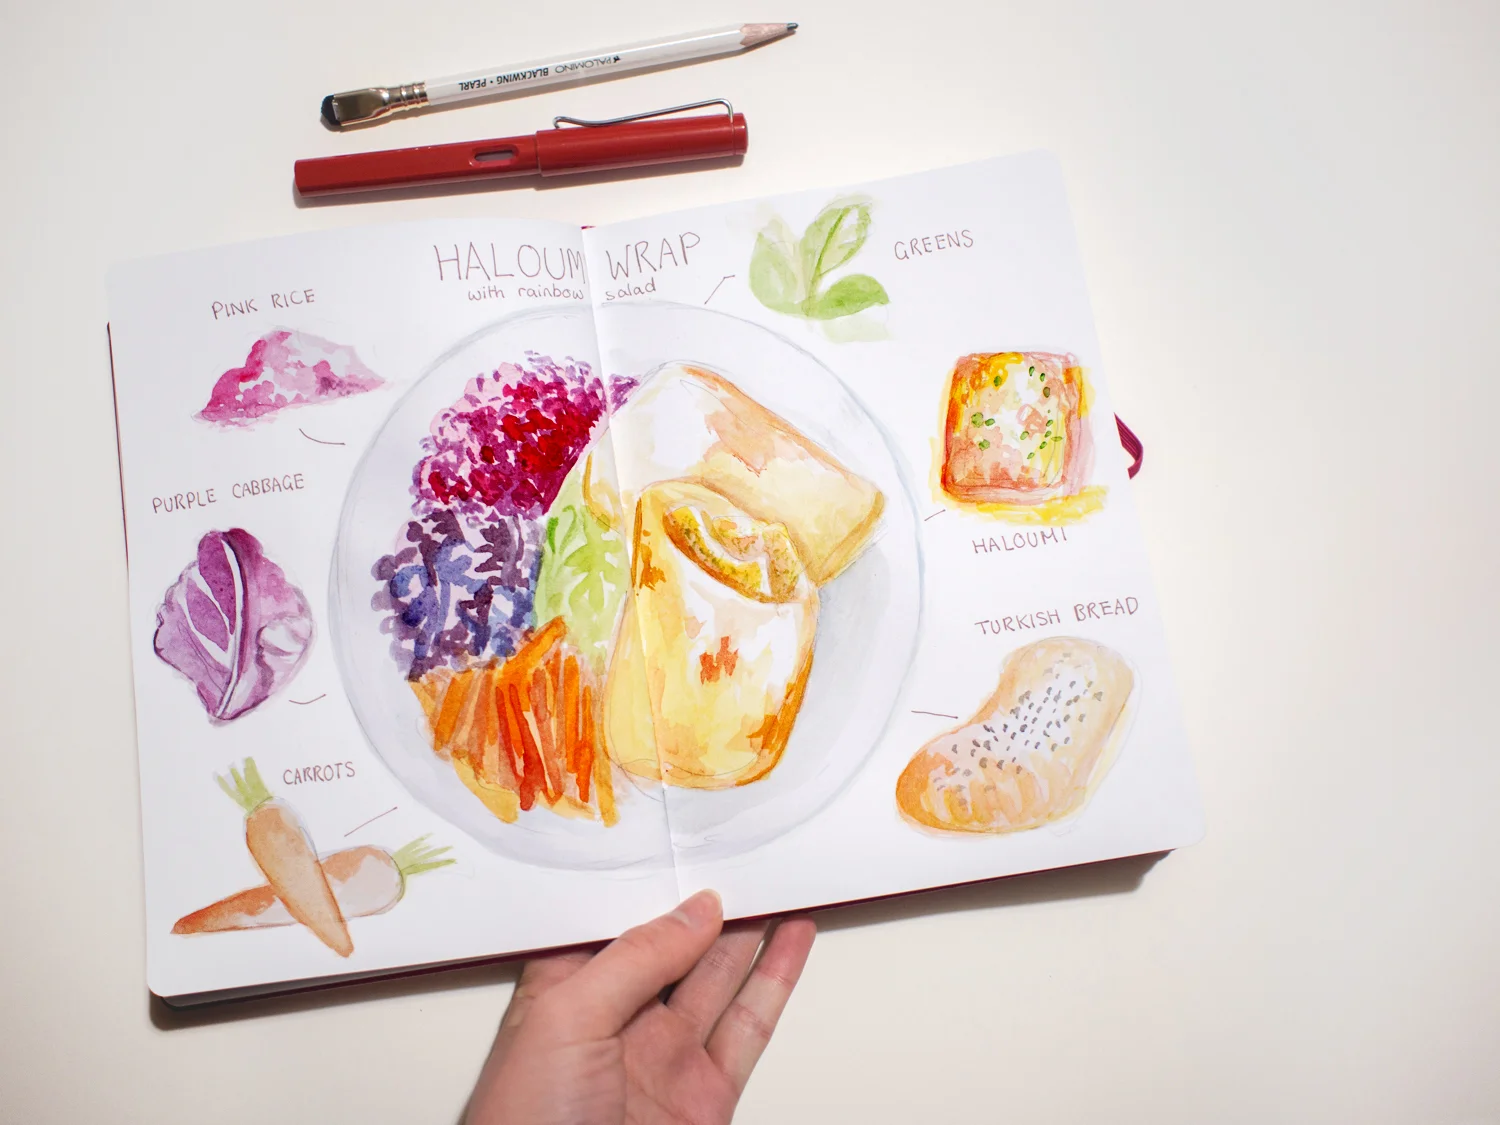 PALOMINO BLACKWING • PEARL
HALOUMI WRAP
with rainbow salad
GREENS
PINK RICE
PURPLE CABBAGE
HALOUMI
TURKISH BREAD
CARROTS